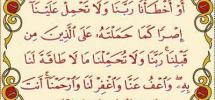 أَوْ أَخْطَأْنَا رَبَّنَا وَلَا تَحْمِلْ عَلَيْنَا
إِصْرًا كَمَا حَمَلْتَهُ عَلَى الَّذِينَ مِن
قَبْلِنَا رَبَّنَا وَلَا تُحَمِّلْنَا مَا لَا طَاقَةَ لَنَا
بِهِ وَاعْفُ عَنَّا وَاغْفِرْ لَنَا وَارْحَمْنَا أَنتَ